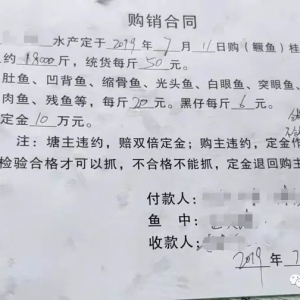 购销合同
水产定于2019年7月11日购(鳜鱼)桂
约18000斤,统货每斤50元。
肚鱼、凹背鱼、缩骨鱼、光头鱼、白眼鱼、突眼鱼、
肉鱼、残鱼等,每斤20元。黑仔鱼每斤6元。
定金10万元。
注:塘主违约,赔双倍定金;购主违约,定金作
检验合格才可以抓,不合格不能抓,定金退回购主
付款人:
鱼 中:
收款人:
2019年7